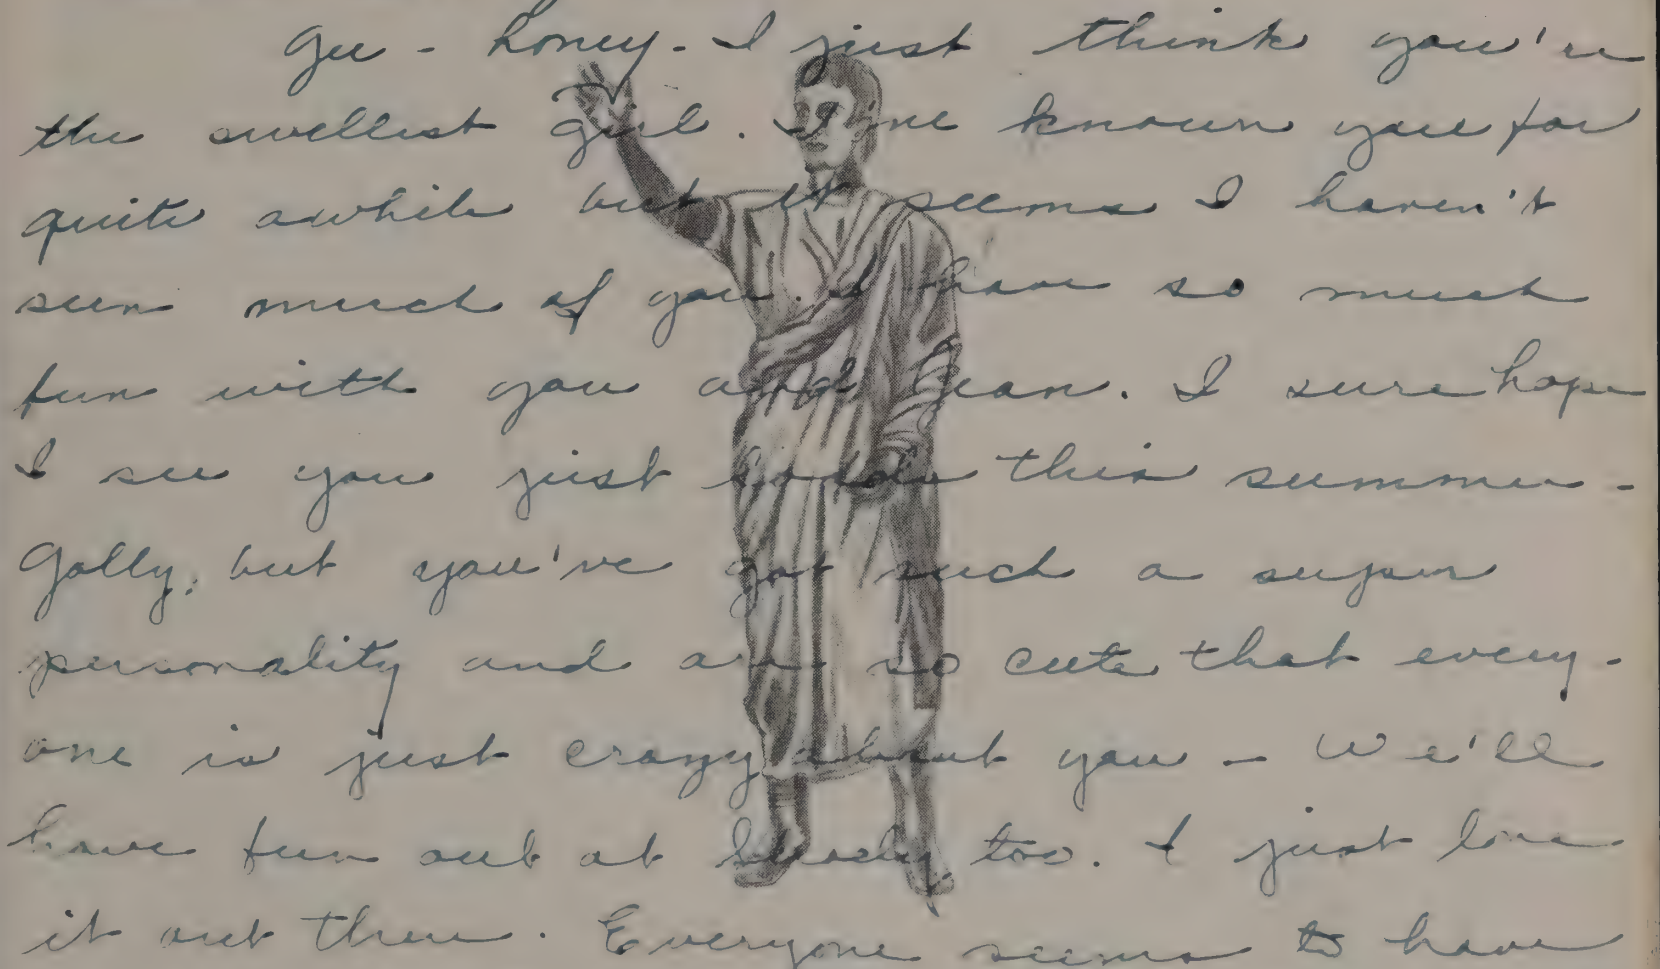 Gee - honey - I just think you're
the swellest girl. I've known you for
quite awhile but it seems I haven't
seen much of you. I have so much
fun with you and Jean. I sure hope
I see you just loads this summer -
Golly, but you've got such a super
personality and are so cute that every-
one is just crazy about you - We'll
have fun out at too. I just love
it out there. Everyone seems to have